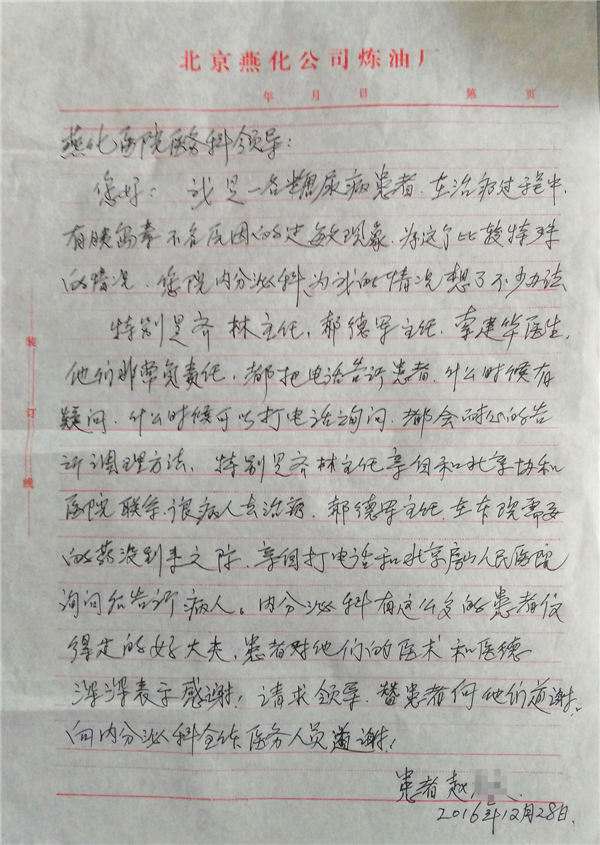 北京燕化公司炼油厂
年 月 日 第 页
燕化医院医务科领导:
您好: 我是一名糖尿病患者.在治疗过程中.
有胰岛素不名原因的过敏现象.为这个比较特殊
的情况.您院内分泌科为我的情况想了不少办法
特别是齐林主任.郝德军主任.索建华医生.
他们非常负责任.都把电话告诉患者.什么时候有
疑问.什么时候可以打电话询问.都会耐心的告
诉调理方法.特别是齐林主任亲自和北京协和
医院联系.让病人去治病.郝德军主任.在本院需要
的药没到来之际.亲自打电话和北京房山人民医院
询问后告诉病人。内分泌科有这么多的患者信
得过的好大夫.患者对他们的医术和医德
深深表示感谢!请求领导.替患者向他们道谢.
向内分泌科全体医务人员道谢!
患者赵
2016年12月28日.
装
订
线